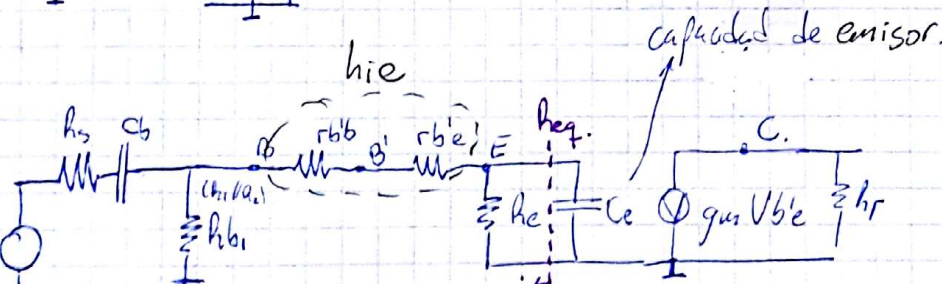 capacidad de emisor.
hie
Rs
Cb
B
rb'b
B'
rb'e
E
Req.
C.
Rb1
Re
Ce
gm Vb'e